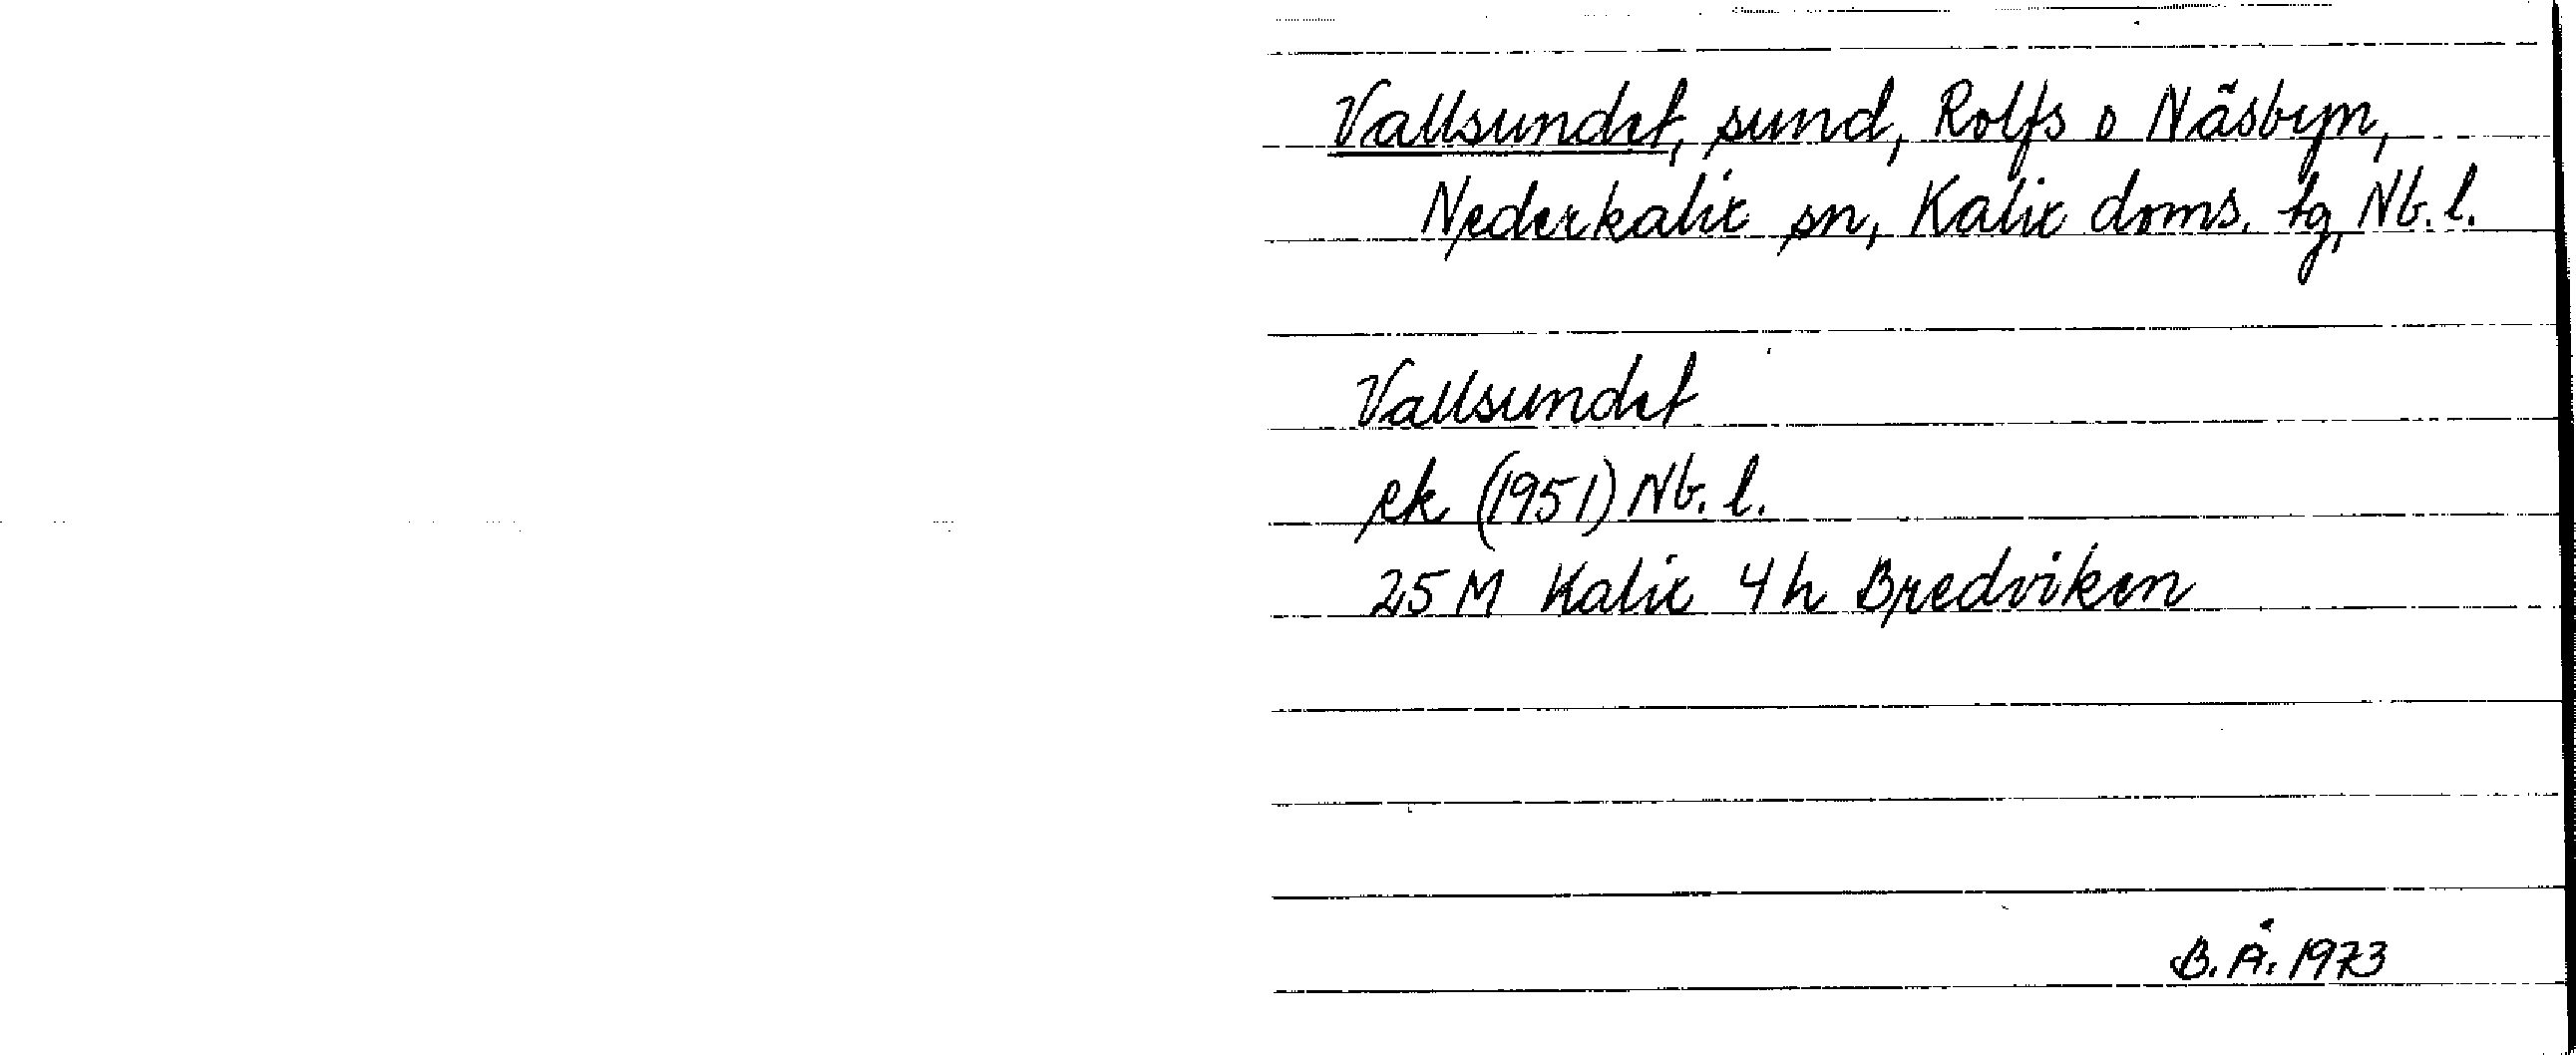 Vallsundet, sund, Rolfs o Näsbyn,
Nederkalix sn, Kalix doms. tg, Nb. l.
Vallsundet
ek (1951) Nb. l.
25 M Kalix 4 h Bredviken
B. Å. 1973